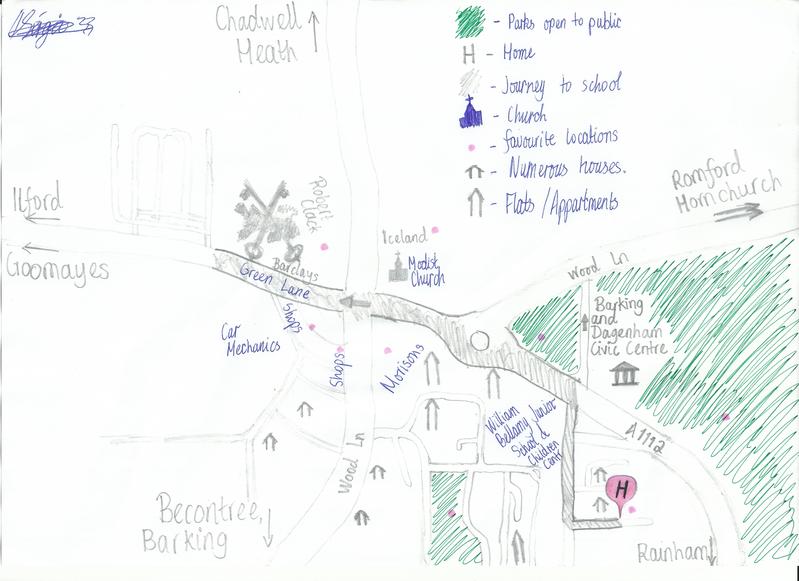 Chadwell
Heath
- Parks open to public
H - Home
- Journey to school
- Church
- favourite locations
- Numerous houses.
- Flats / Appartments
Ilford
Goomayes
Robert
Clack
Barclays
Green Lane
Iceland
Modist
Church
Romford
Hornchurch
Wood Ln
Barking
and
Dagenham
Civic Centre
Car
Mechanics
Shops
Shops
Morisons
William
Bellamy Junior
School &
Children
Centr
A1112
Wood Ln
H
Becontree,
Barking
Rainham